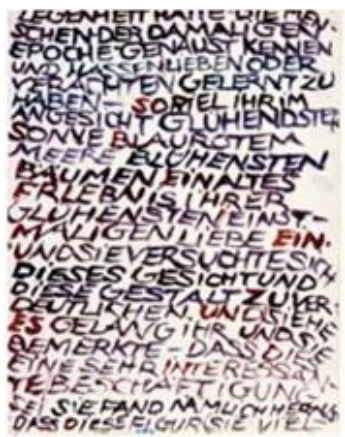 LEGENHEIT HATTE DIE MEN-
SCHEN DER DAMALIGEN
EPOCHE GENAUST KENNEN
UND HASSEN LIEBEN ODER
VERACHTEN GELERNT ZU
HABEN – SO FIEL IHR IM
ANGESICHT GLÜHENDSTER
SONNE BLAURGTEM
MEERE BLÜHENSTEN
BÄUMEN EIN ALTES
ERLEBNIS IHRER
GLÜHENSTEN EINST-
MALIGEN LIEBE EIN.
UND SIE VERSUCHTE SICH
DIESES GESICHT UND
DIESE GESTALT ZU VER-
DEUTLICHEN. UND SIEHE
ES GELANG IHR UND SIE
BEMERKTE – DASS DIES
EINE SEHR INTERESSAN
TE BESCHÄFTIGUNG
SEI SIE FAND NÄMLICH HERAUS
DASS DIESE FIGUR SIE VIEL